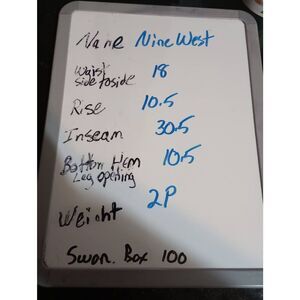 Name Nine West
Waist 18
side to side
Rise 10.5
Inseam 30.5
Bottom Hem 10.5
Leg opening
Weight 2P
Swan. Box 100